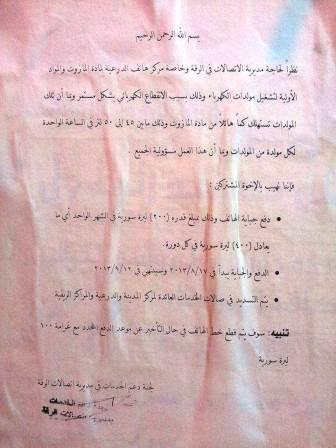 بسم الله الرحمن الرحيم
نظراً لحاجة مديرية الاتصالات في الرقة وخاصة مركز هاتف الدرعية لمادة المازوت والمواد
الأولية لتشغيل مولدات الكهرباء وذلك بسبب الانقطاع الكهربائي بشكل مستمر وبما أن تلك
المولدات تستهلك كماً هائلاً من مادة المازوت وذلك مابين ٤٥ إلى ٥٠ لتر في الساعة الواحدة
لكل مولدة من المولدات وبما أن هذا العمل مسؤولية الجميع .
فإننا نهيب بالإخوة المشتركين :
• دفع جباية الهاتف وذلك بمبلغ قدره (٢٠٠) ليرة سورية في الشهر الواحد أي ما
يعادل (٤٠٠) ليرة سورية في كل دورة.
• الدفع والجباية يبدأ في ٢٠١٣/٨/١٧ وسينتهي في ٢٠١٣/٩/١٢
• يتم التسديد في صالات الخدمات العائدة لمركز المدينة والدرعية والمراكز الريفية
تنبيه: سوف يتم قطع خط الهاتف في حال التأخير عن موعد الدفع المحدد مع غرامة ١٠٠
ليرة سورية
لجنة دعم الخدمات في مديرية اتصالات الرقة
دعم الخدمات
اتصالات الرقة